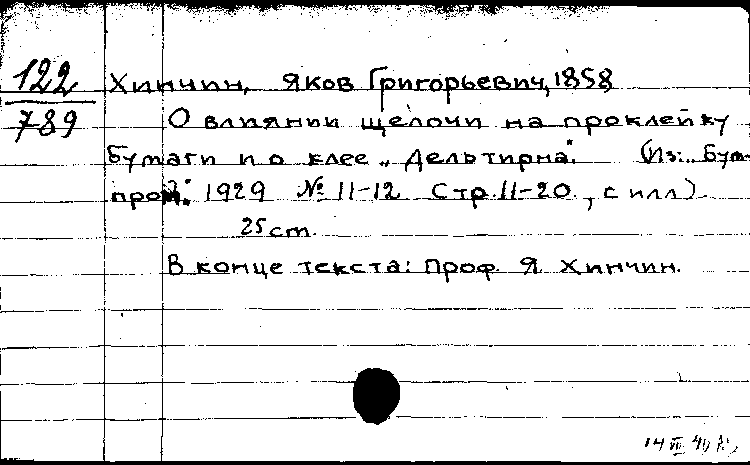 122 Хинчин, Яков Григорьевич, 1858
789 О влиянии щелочи на проклейку
бумаги и о клее „Дельтирна". (Из: „Бум.
пром." 1929 № 11-12 Стр. 11-20, с илл.)
25 cm.
В конце текста: Проф. Я. Хинчин.
14 VII 40